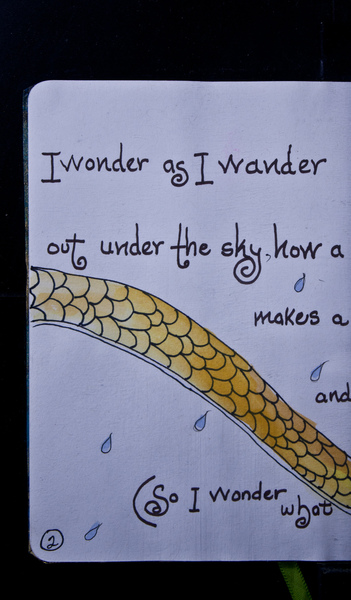 I wonder as I wander
out under the sky, how a
makes a
and
(So I wonder what
2